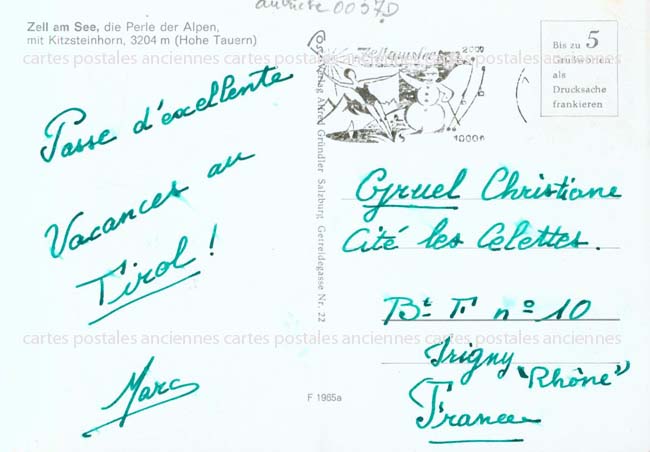 autriche 0037D
Zell am See, die Perle der Alpen,
mit Kitzsteinhorn, 3204 m (Hohe Tauern)
cartes postales anciennes
cartes postales anciennes
Passe d'excellente
Vacances au
Tirol !
Marc
Postverlag Alfred Gründler Salzburg Getreidegasse Nr. 22
Zell am See
2000
1000m
Bis zu 5
Grußworten
als
Drucksache
frankieren
Gruel Christiane
Cité les Celettes.
Bt F nº 10
Irigny "Rhône"
France
F 1965a
cartes postales anciennes
cartes postales anciennes